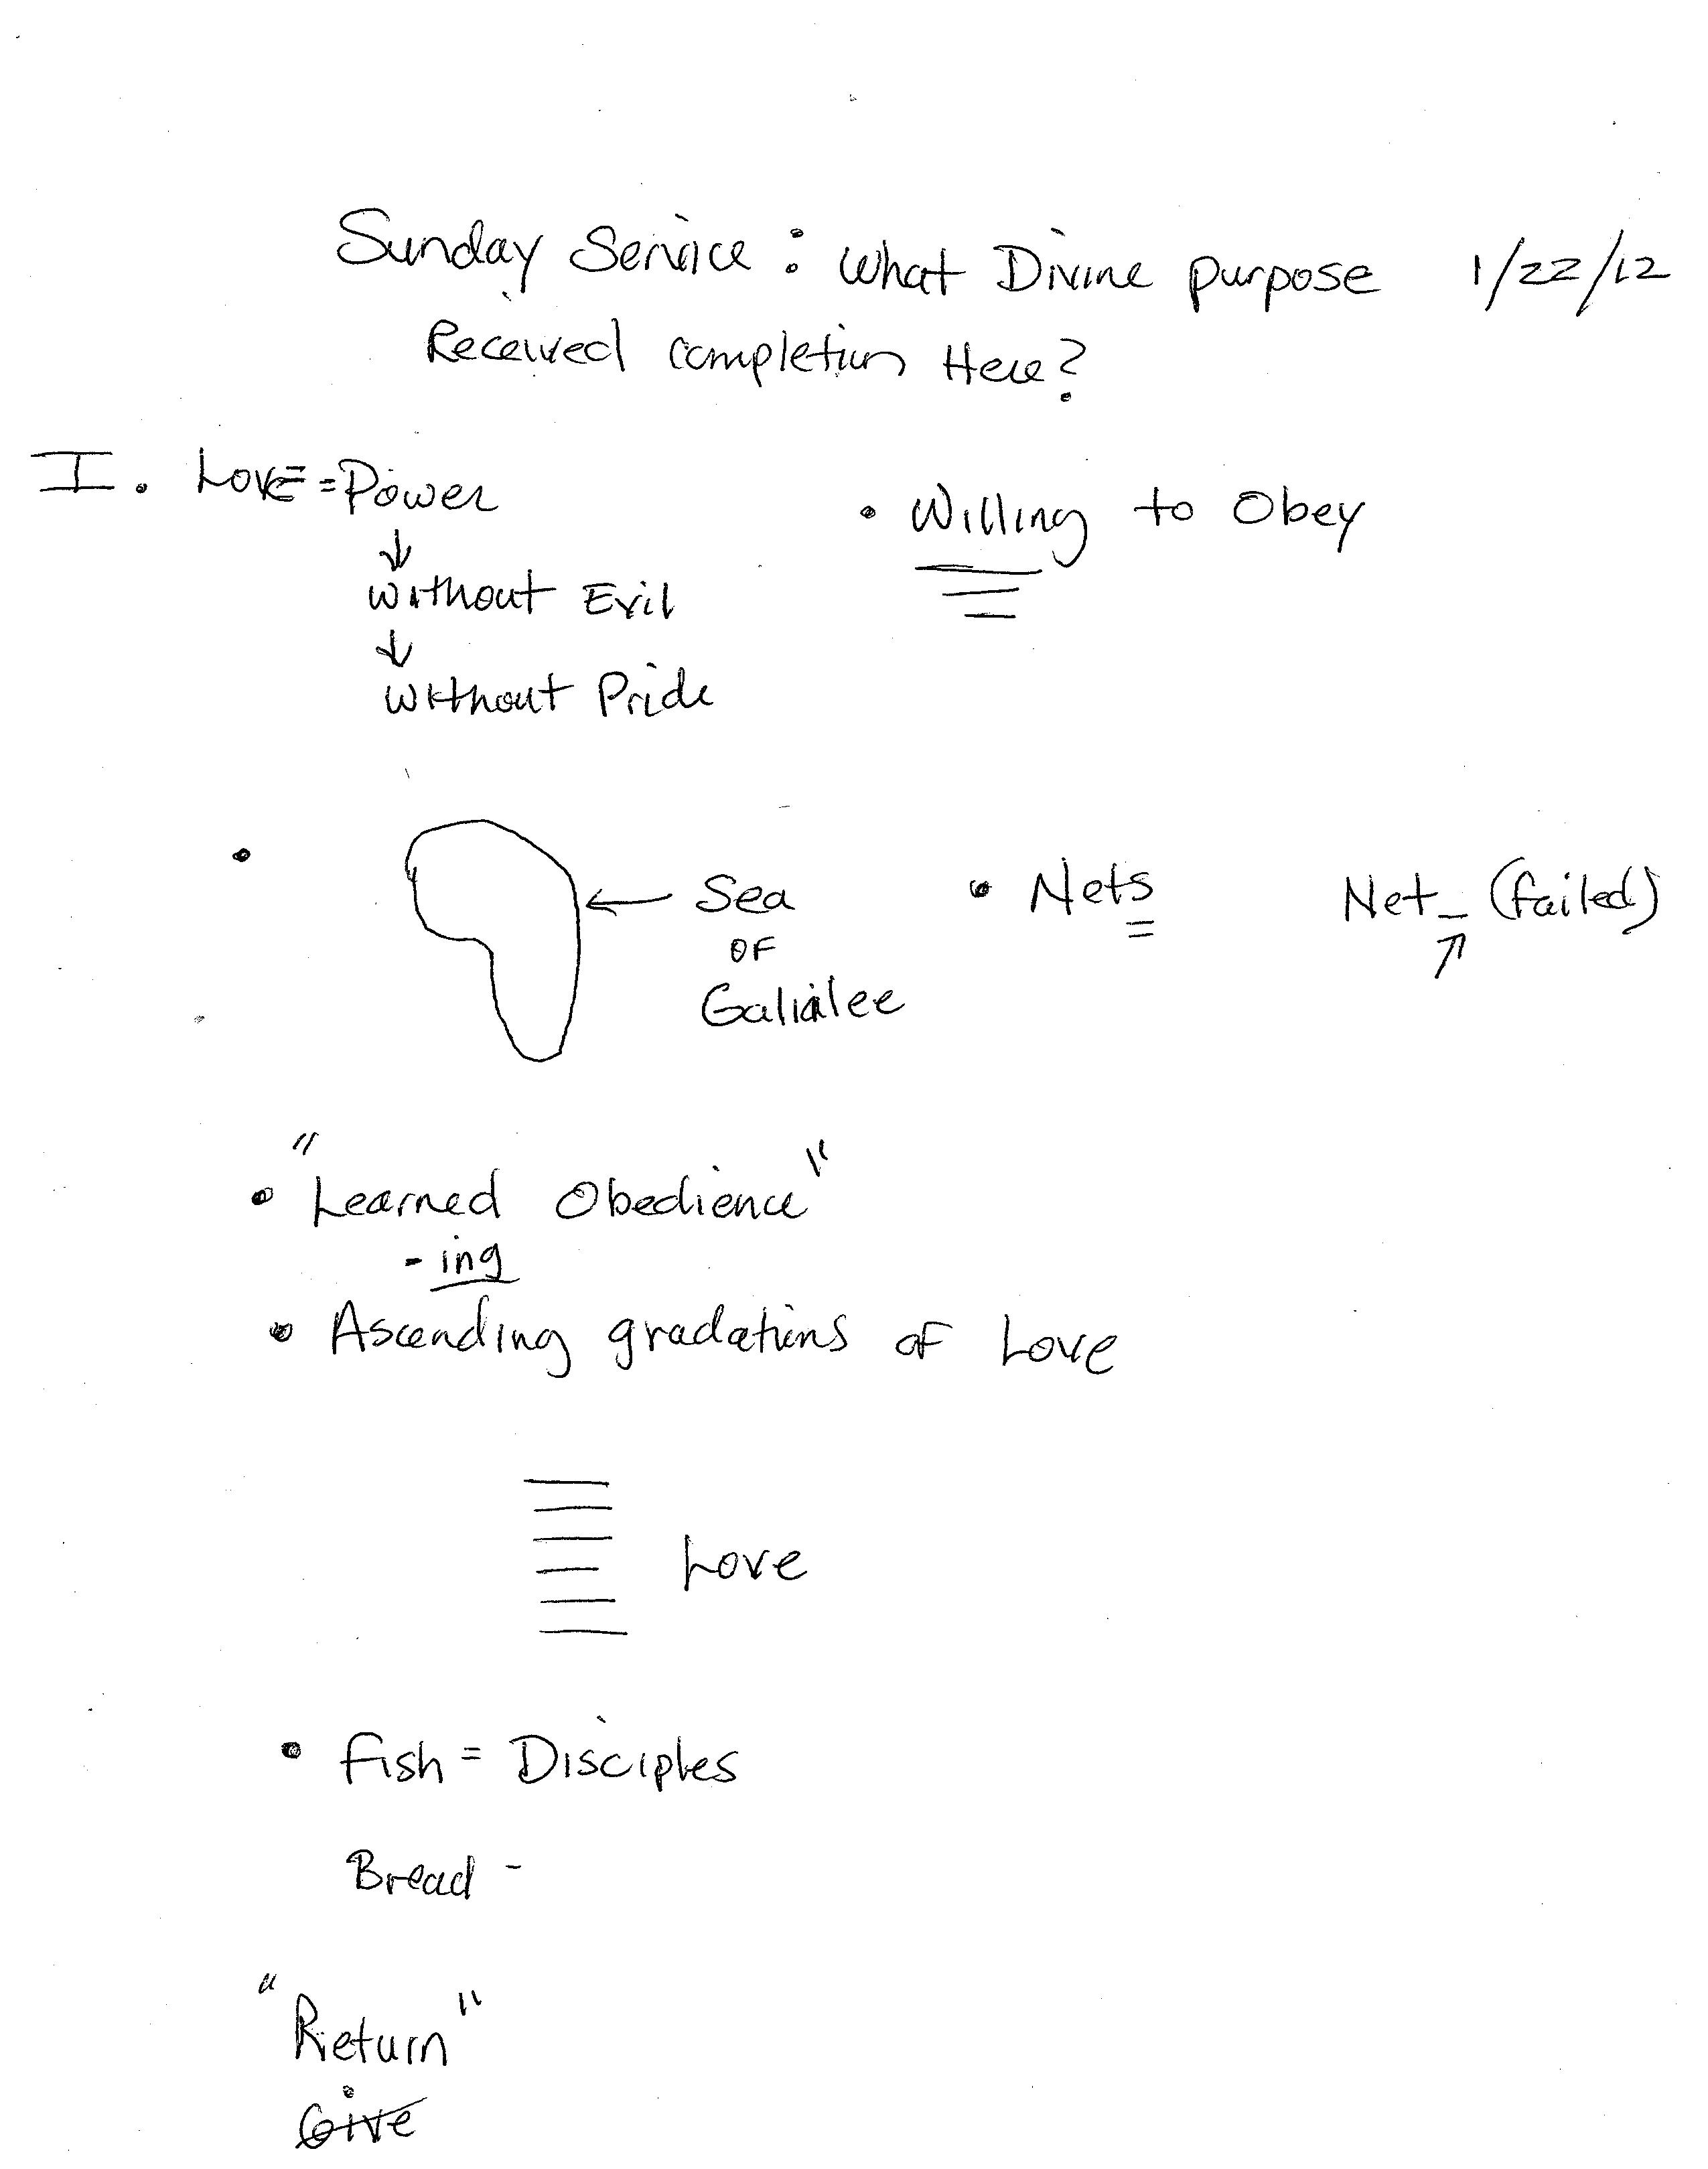 Sunday Service: What Divine purpose 1/22/12
Received completion Here?
I. Love = Power
• Willing to Obey
↓
without Evil
↓
without Pride
• ← Sea
of
Galialee
• Nets Net_ (failed)
↑
• "Learned Obedience"
- ing
• Ascending gradations of Love
Love
• Fish = Disciples
Bread -
"Return"
Give